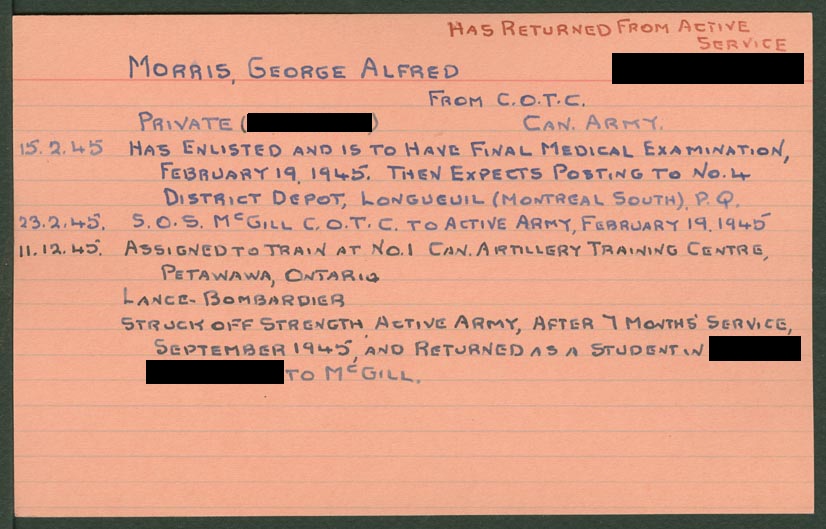 HAS RETURNED FROM ACTIVE
SERVICE
MORRIS, GEORGE ALFRED
FROM C.O.T.C.
PRIVATE ( ) CAN. ARMY.
15.2.45 HAS ENLISTED AND IS TO HAVE FINAL MEDICAL EXAMINATION,
FEBRUARY 19, 1945. THEN EXPECTS POSTING TO NO.4
DISTRICT DEPOT, LONGUEUIL (MONTREAL SOUTH), P.Q.
23.2.45. S.O.S. McGILL C.O.T.C. TO ACTIVE ARMY, FEBRUARY 19, 1945
11.12.45. ASSIGNED TO TRAIN AT NO.1 CAN. ARTILLERY TRAINING CENTRE,
PETAWAWA, ONTARIO
LANCE-BOMBARDIER
STRUCK OFF STRENGTH, ACTIVE ARMY, AFTER 7 MONTHS' SERVICE,
SEPTEMBER 1945, AND RETURNED AS A STUDENT IN
TO McGILL.